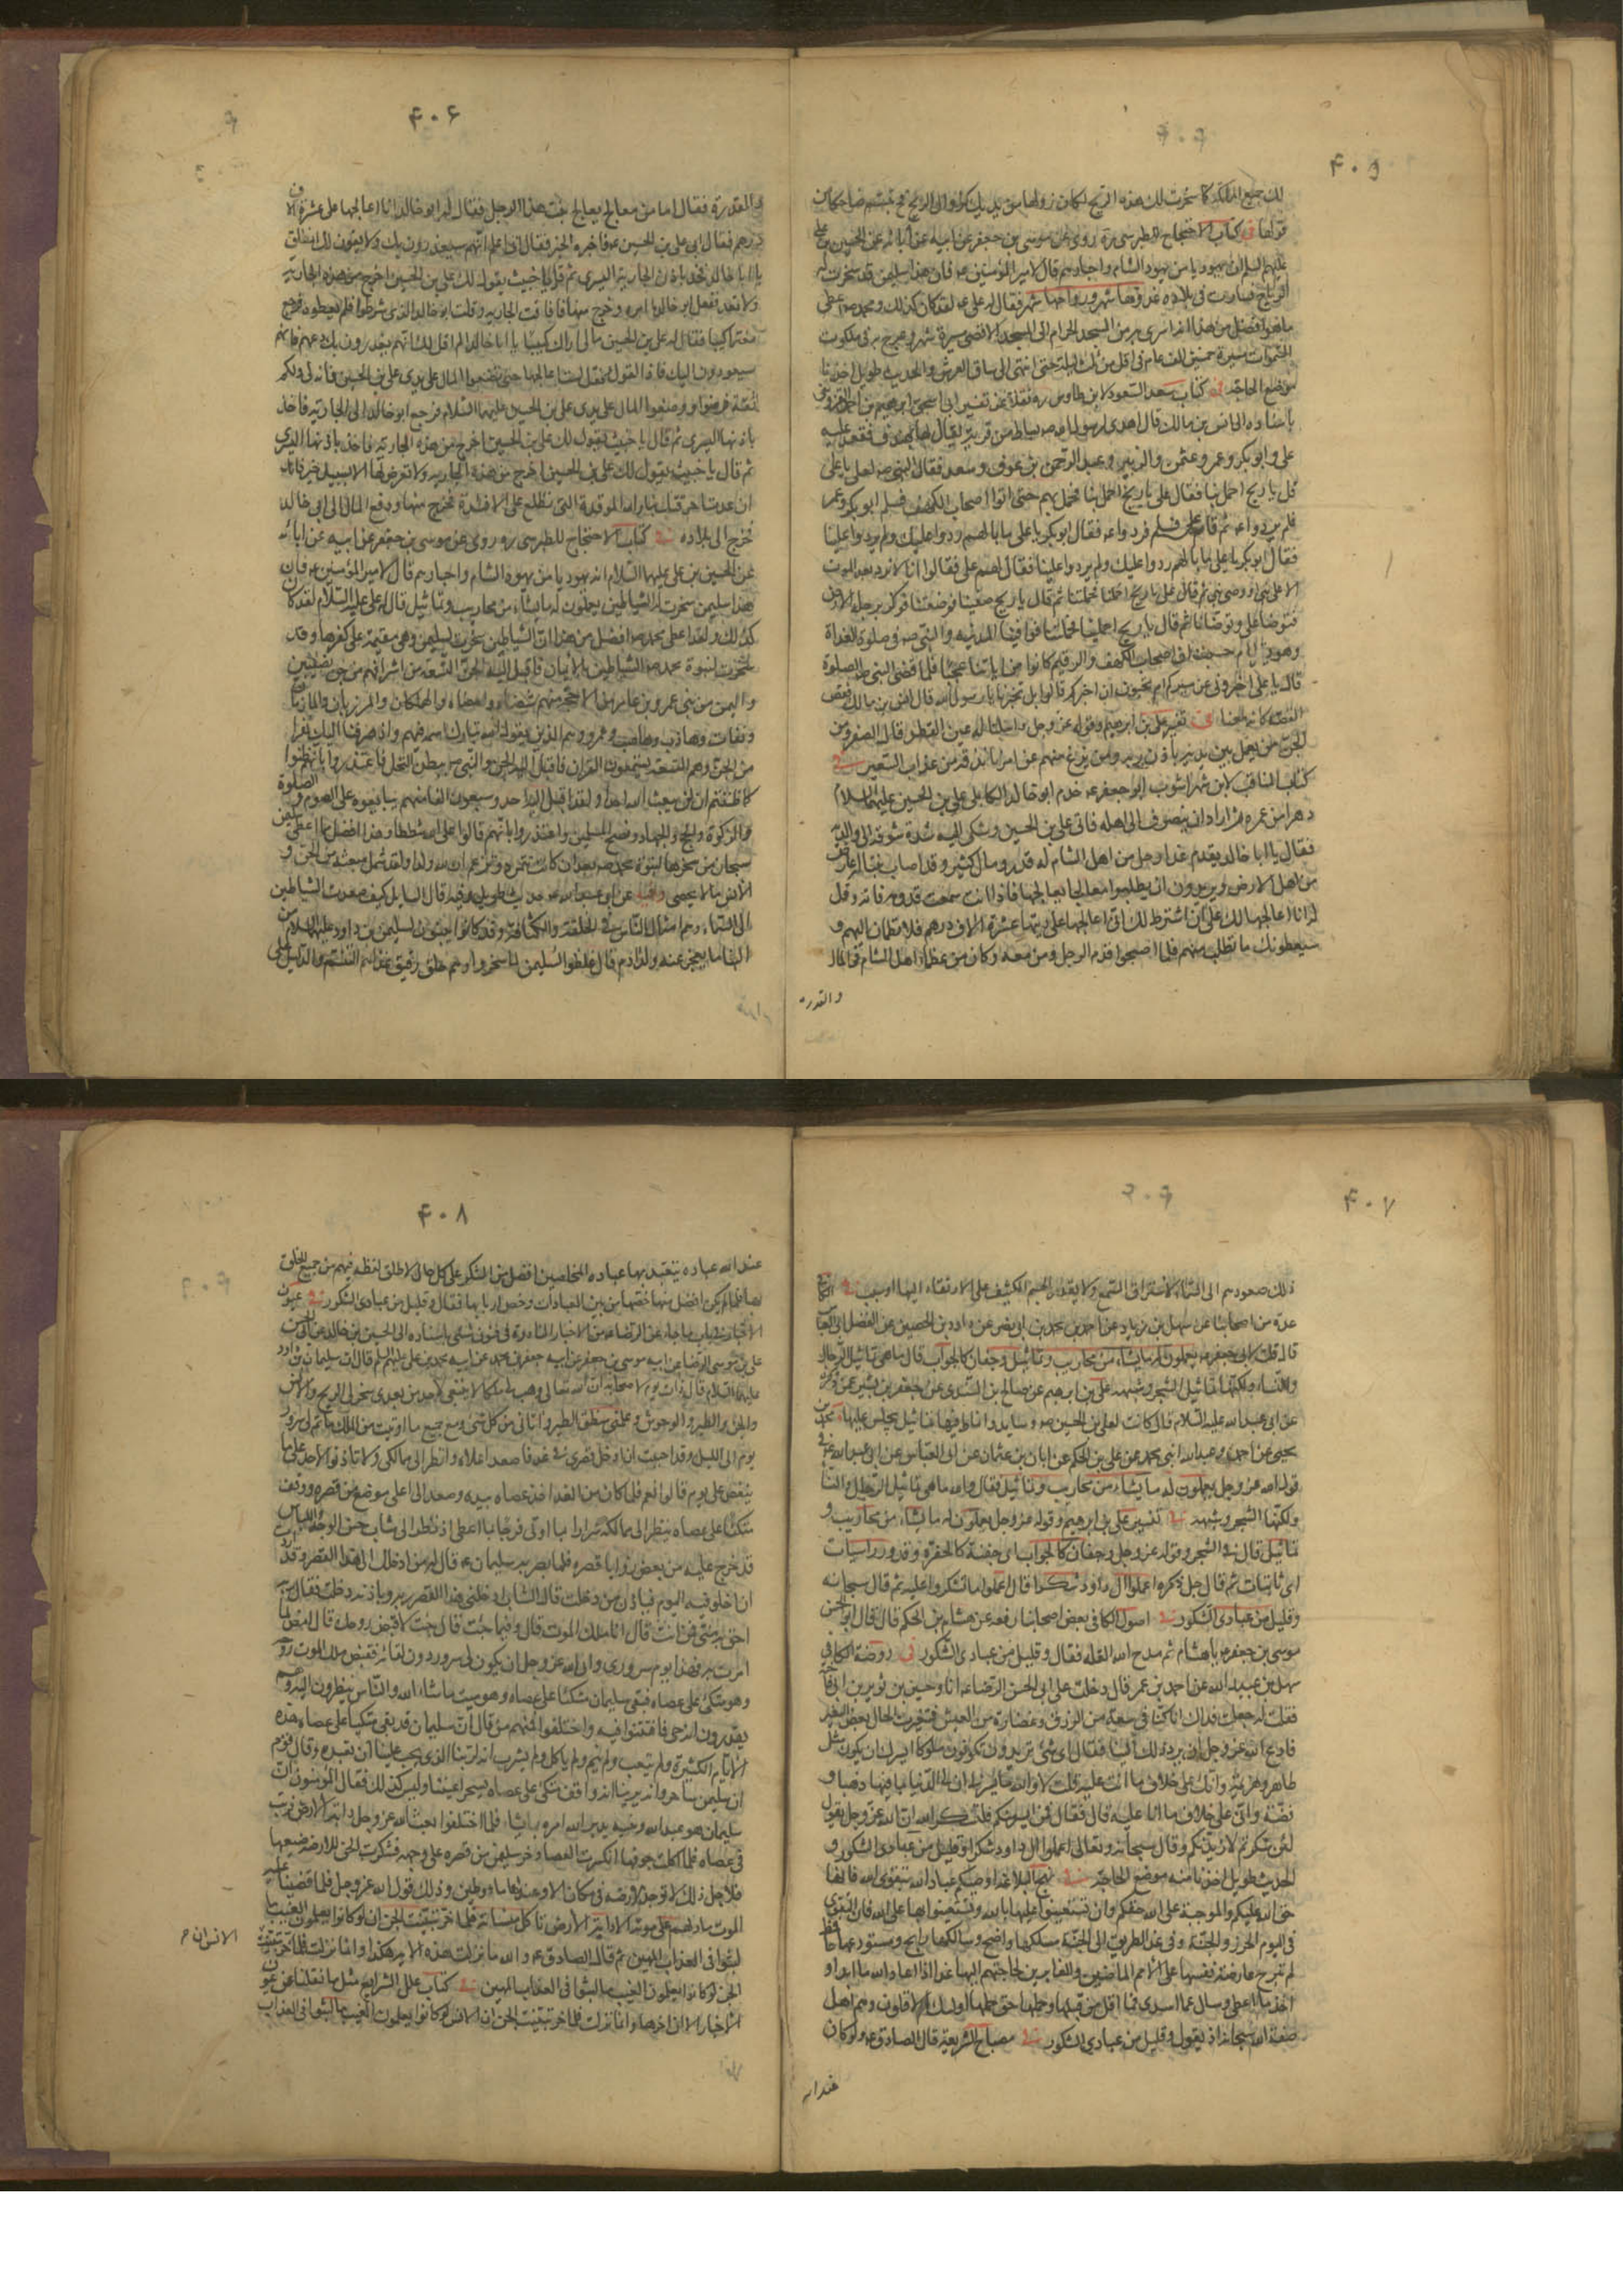 ۴۰۵
لك جميع المملكة كما سخرت لك هذه الريح لكان زوالها من يديك كزوال الريح فح تبسم ضاحكا من
قولها في كتاب الاحتجاج للطبرسى ره روى عن موسى بن جعفر عن ابيه عن آبائه عن الحسين بن على
عليهم السلم ان يهوديا من يهود الشام واحبارهم قال لامير المؤمنين ع فان هذا سليمن قد سخرت له
الرياح فسارت في بلاده غدوها شهر ورواحها شهر فقال له على ع لقد كان كذلك ومحمد ص اعطى
ما هو افضل من هذا انه اسرى به من المسجد الحرام الى المسجد الاقصى مسيرة شهر وعرج به في ملكوت
السموات مسيرة خمسين الف عام في اقل من ثلث ليلة حتى انتهى الى ساق العرش والحديث طويل اخذنا
موضع الحاجة في كتاب سعد السعود لابن طاوس ره نقلا عن تفسير ابى اسحق ابرهيم بن احمد القزوينى
باسناده الى انس بن مالك قال اهدى لرسول الله ص بساط من قرية يقال لها بهندف فقعد عليه
على وابو بكر وعمر وعثمن والزبير وعبد الرحمن بن عوف وسعد فقال النبى ص لعلى يا على
قل يا ريح احملينا فقال على يا ريح احملينا فحمل بهم حتى اتوا اصحاب الكهف فسلم ابو بكر وعمر
فلم يردوا ع ثم قام على فسلم فردوا ع فقال ابو بكر يا على ما بالهم ردوا عليك ولم يردوا علينا
فقال ابو بكر يا على ما بالهم ردوا عليك ولم يردوا علينا فقال لهم على فقالوا انا لا نرد بعد الموت
الا على نبى او وصى نبى ثم قال على يا ريح احملينا فحملتنا ثم قال يا ريح ضعينا فوضعتنا فركز برجله الارض
فتوضأ على وتوضأنا ثم قال يا ريح احملينا فحملتنا فوافينا المدينة والنبى ص في صلوة الغداة
وهو يقرأ ام حسبت ان اصحاب الكهف والرقيم كانوا من اياتنا عجبا فلما قضى النبى ص الصلوة
قال يا على اخبرونى عن مسيركم ام تحبون ان اخبركم قالوا بل تخبرنا يا رسول الله قال انس بن مالك فقص
القصة كانه معنا في تفسير على بن ابرهيم وقوله عز وجل واسلنا له عين القطر قال الصفر ومن
الجن من يعمل بين يديه باذن ربه ومن يزغ منهم عن امرنا نذقه من عذاب السعير في
كتاب المناقب لابن شهر اشوب ابو جعفر ع خدم ابو خالد الكابلى على بن الحسين عليهما السلام
دهرا من عمره ثم اراد ان ينصرف الى اهله فاتى على بن الحسين وشكى اليه شدة شوقه الى والديه
فقال يا ابا خالد يقدم غدا رجل من اهل الشام له قدر ومال كثير وقد اصاب بنتا له عارض
من اهل الارض ويريدون ان يطلبوا معالجا يعالجها فاذا انت سمعت قدومه فاته وقل
له انا اعالجها لك على ان اشترط لك انى اعالجها على ديتها عشرة الاف درهم فلا تطمان اليهم و
سيعطونك ما تطلب منهم فلما اصبحوا قدم الرجل ومن معه وكان من عظماء اهل الشام في المال
والقدرة
۴۰۶
والمقدرة فقال اما من معالج يعالج بنت هذا الرجل فقال له ابو خالد انا اعالجها على عشرة الاف
درهم فقال ابى على بن الحسين ع فاخبره الخبر فقال انى اعلم انهم سيغدرون بك ولا يفون لك انطلق
يا ابا خالد فخذ باذن الجارية اليسرى ثم قل يا خبيث يقول لك على بن الحسين اخرج من هذه الجارية
ولا تعد ففعل ابو خالد ما امره وخرج منها فافاقت الجارية وطلب ابو خالد الذى شرطوا فلم يعطوه فرجع
مغتما كئيبا فقال له على بن الحسين مالى اراك كئيبا يا ابا خالد الم اقل لك انهم يغدرون بك دعهم فانهم
سيعودون اليك فاذا لقوك فقل لست اعالجها حتى تضعوا المال على يدى على بن الحسين فانه لى ولكم
ثقة فرضوا ووضعوا المال على يدى على بن الحسين عليهما السلام فرجع ابو خالد الى الجارية فاخذ
باذنها اليسرى ثم قال يا خبيث يقول لك على بن الحسين اخرج من هذه الجارية
ثم قال يا خبيث يقول لك على بن الحسين اخرج من هذه الجارية ولا تعرض لها الا بسبيل خير فانك
ان عدت احرقتك بنار الله الموقدة التى تطلع على الافئدة فخرج منها ودفع المال الى ابى خالد
فخرج الى بلاده في كتاب الاحتجاج للطبرسى ره روى عن موسى بن جعفر عن ابيه عن ابائه
عن الحسين بن على عليهما السلام ان يهوديا من يهود الشام واحبارهم قال لامير المؤمنين ع فان
هذا سليمن سخرت له الشياطين يعملون له ما يشاء من محاريب وتماثيل قال له على عليه السلام لقد كان
كذلك ولقد اعطى محمد ص افضل من هذا ان الشياطين سخرت لسليمن وهى مقيمة على كفرها وقد
سخرت لنبوة محمد ص الشياطين بالايمان فاقبل اليه الجن التسعة من اشرافهم من جن نصيبين
واليمن من بنى عمرو بن عامر من الاحجة منهم شضاه ومضاه والهملكان والمرزبان والمازمان
ونضاه وهاضب وعمرو وهم الذين يقول الله تبارك اسمه فيهم واذ صرفنا اليك نفرا
من الجن وهم التسعة يستمعون القران فاقبل اليه الجن والنبى ص ببطن النخل فاعتذروا بانهم ظنوا
كما ظننتم ان لن يبعث الله احدا ولقد اقبل اليه احد وسبعون الفا منهم يبايعوه على الصوم والصلوة
والزكوة والحج والجهاد ونصح المسلمين واعتذروا بانهم قالوا على الله شططا وهذا افضل مما اعطى سليمن
سبحان من سخرها لنبوة محمد ص بعد ان كانت تتمرد وتزعم ان لله ولدا ولقد شمل مبعثه من الجن و
الانس ما لا يحصى وفيه عن ابى عبد الله ع حديث طويل وفيه قال السايل كيف صعدت الشياطين
الى السماء وهم امثال الناس في الخلقة والكثافة وقد كانوا يبنون لسليمن بن داود عليهما السلام من
البناء ما يعجز عنه ولد ادم قال غلظوا لسليمن لما سخروا وهم خلق رقيق غذاؤهم التنسم والدليل على
۴۰۷
ذلك صعودهم الى السماء لاستراق السمع ولا يقدر الجسم الكثيف على الارتقاء اليها الا بسبب في الكافى
عدة من اصحابنا عن سهل بن زياد عن احمد بن محمد بن ابى نصر عن داود بن الحصين عن الفضل ابى العباس
قال قلت لابى جعفر ع يعملون له ما يشاء من محاريب وتماثيل وجفان كالجواب قال ما هى تماثيل الرجال
والنساء ولكنها تماثيل الشجر وشبهه على بن ابرهيم عن صالح بن السندى عن جعفر بن بشير عمن ذكره
عن ابى عبد الله عليه السلام قال كانت لعلى بن الحسين ص وسايد وانماط فيها تماثيل يجلس عليها محمد بن
يحيى عن احمد وعبد الله ابنى محمد عن على بن الحكم عن ابان بن عثمان عن ابى العباس عن ابى عبد الله ع في
قول الله عز وجل يعملون له ما يشاء من محاريب وتماثيل فقال والله ما هى تماثيل الرجال والنساء
ولكنها الشجر وشبهه في تفسير على بن ابرهيم وقوله عز وجل يعملون له ما يشاء من محاريب و
تماثيل قال في الشجر وقوله عز وجل وجفان كالجواب اى جفنة كالحفرة وقدور راسيات
اى ثابتات ثم قال جل ذكره اعملوا ال داود شكرا قال اعملوا ما تشكروا عليه ثم قال سبحانه
وقليل من عبادى الشكور في اصول الكافى بعض اصحابنا رفعه عن هشام بن الحكم قال قال ابو الحسن
موسى بن جعفر ع يا هشام ثم مدح الله القلة فقال وقليل من عبادى الشكور في روضة الكافى
سهل بن عبيد الله عن احمد بن عمر قال دخلت على ابى الحسن الرضا ع انا وحسين بن ثوير بن ابى فاختة
فقلت له جعلت فداك انا كنا في سعة من الرزق وغضارة من العيش فتغيرت الحال بعض التغير
فادع الله عز وجل ان يرد ذلك الينا فقال اى شئ تريدون تكونون ملوكا ايسرك ان تكون مثل
طاهر وهرثمة وانك على خلاف ما انت عليه قلت لا والله ما يسرنى ان لى الدنيا بما فيها ذهبا و
فضة وانى على خلاف ما انا عليه قال فقال فمن ايسر منكم فليشكر الله ان الله عز وجل يقول
لئن شكرتم لازيدنكم وقال سبحانه وتعالى اعملوا ال داود شكرا وقليل من عبادى الشكور و
الحديث طويل اخذنا منه موضع الحاجة في نهج البلاغة اوصيكم عباد الله بتقوى الله فانها
حق الله عليكم والموجبة على الله حقكم وان تستعينوا عليها بالله وتستعينوا بها على الله فان التقوى
في اليوم الحرز والجنة وفي غد الطريق الى الجنة مسلكها واضح وسالكها رابح ومستودعها حافظ
لم تبرح عارضة نفسها على الامم الماضين والغابرين لحاجتهم اليها غدا اذا اعاد الله ما ابدا و
اخذ ما اعطى وسال عما اسدى فما اقل من قبلها وحملها حق حملها اولئك الاقلون وهم اهل
صفة الله سبحانه اذ يقول وقليل من عبادى الشكور في مصباح الشريعة قال الصادق ع ولو كان
عند الله
۴۰۸
عند الله عباده يتعبد بها عباده المخلصين افضل من الشكر على كل حال لاطلق لفظه فيهم من جميع الخلق
بها فلما لم يكن افضل منها خصها من بين العبادات وخص اربابها فقال وقليل من عبادى الشكور في عيون
الاخبار في باب ما جاء عن الرضا ع من الاخبار النادرة في فنون شتى باسناده الى الحسين بن خالد عن ابى الحسن
على بن موسى الرضا عن ابيه موسى بن جعفر عن ابيه جعفر بن محمد عن ابيه محمد بن على عليهم السلم قال ان سليمان بن داود
عليهما السلام قال ذات يوم لاصحابه ان الله تعالى وهب لى ملكا لا ينبغى لاحد من بعدى سخر لى الريح والانس
والجن والطير والوحوش وعلمنى منطق الطير واتانى من كل شئ ومع جميع ما اوتيت من الملك ما تم لى سرور
يوم الى الليل وقد احببت ان ادخل قصرى في غد فاصعد اعلاه وانظر الى ممالكى ولا تاذنوا لاحد على ما
ينغص على يومى قالوا نعم فلما كان من الغد اخذ عصاه بيده وصعد الى اعلى موضع من قصره ووقف
متكئا على عصاه ينظر الى ممالكه سرورا بما اوتى فرحا بما اعطى اذ نظر الى شاب حسن الوجه واللباس
قد خرج عليه من بعض زوايا قصره فلما بصر به سليمان ع قال له من ادخلك الى هذا القصر وقد اردت
ان اخلو فيه اليوم فباذن من دخلت قال الشاب ادخلنى هذا القصر ربه وباذنه دخلت فقال ربه
احق به منى فمن انت قال انا ملك الموت قال وفيما جئت قال جئت لاقبض روحك قال امض لما
امرت به فهذا يوم سرورى وابى الله عز وجل ان يكون لى سرور دون لقائه فقبض ملك الموت روحه
وهو متكئ على عصاه فبقى سليمان متكئا على عصاه وهو ميت ما شاء الله والناس ينظرون اليه وهم
يقدرون انه حى فافتتنوا فيه واختلفوا فمنهم من قال ان سليمان قد بقى متكيا على عصاه هذه
الايام الكثيرة ولم يتعب ولم ينم ولم ياكل ولم يشرب انه لربنا الذى يجب علينا ان نعبده وقال قوم
ان سليمن ساحر وانه يرينا انه واقف متكئ على عصاه يسحر اعيننا وليس كذلك فقال المؤمنون ان
سليمان هو عبد الله ونبيه يدبر الله امره بما يشاء فلما اختلفوا بعث الله عز وجل دابة الارض فدبت
في عصاه فلما اكلت جوفها انكسرت العصا وخر سليمن من قصره على وجهه فشكرت الجن للارضة صنيعها
فلاجل ذلك لا توجد الارضة في مكان الا وعندها ماء وطين وذلك قول الله عز وجل فلما قضينا عليه
الموت ما دلهم على موته الا دابة الارض تاكل منساته فلما خر تبينت الجن ان لو كانوا يعلمون الغيب ما
لبثوا في العذاب المهين ثم قال الصادق ع والله ما نزلت هذه الاية هكذا وانما نزلت فلما خر تبينت
الانس ان م
الجن لو كانوا يعلمون الغيب ما لبثوا في العذاب المهين في كتاب علل الشرايع مثل ما نقلنا عن عيون
الاخبار الا ان اخرها وانما نزلت فلما خر تبينت الجن ان الانس لو كانوا يعلمون الغيب ما لبثوا في العذاب